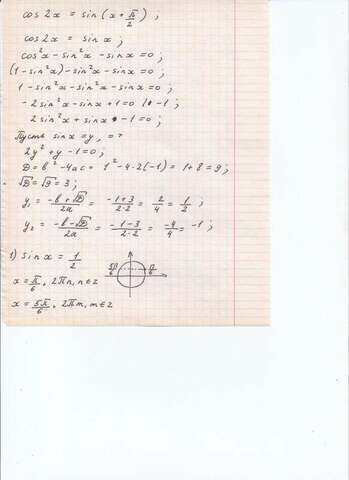 cos 2x = sin (x + π/2) ;
cos 2x = sin x ;
cos²x - sin²x - sin x = 0 ;
(1 - sin²x) - sin²x - sin x = 0 ;
1 - sin²x - sin²x - sin x = 0 ;
- 2 sin²x - sin x + 1 = 0 | · -1 ;
2 sin²x + sin x - 1 = 0 ;
Пусть sin x = y , =>
2y² + y - 1 = 0 ;
D = b² - 4ac = 1² - 4 · 2 (-1) = 1 + 8 = 9 ;
√D = √9 = 3 ;
y₁ = (-b + √D)/2a = (-1 + 3)/(2·2) = 2/4 = 1/2 ;
y₂ = (-b - √D)/2a = (-1 - 3)/(2·2) = -4/4 = -1 ;
1) sin x = 1/2
5π/6 π/6
x = π/6 + 2πn, n ∈ z
x = 5π/6 + 2πm, m ∈ z